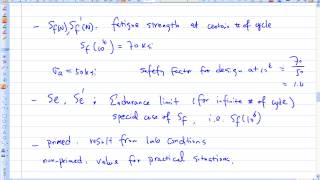 - Sf(N), Sf'(N). fatigue strength at certain # of cycle
Sf(10⁴) = 70 ksi
σa = 50 ksi safety factor for design at 10⁴ = 70/50
= 1.4
- Se, Se' ; Endurance limit (for infinite # of cycle)
special case of Sf, i.e. Sf(10⁶)
- primed. result from lab conditions
non-primed. value for practical situations,